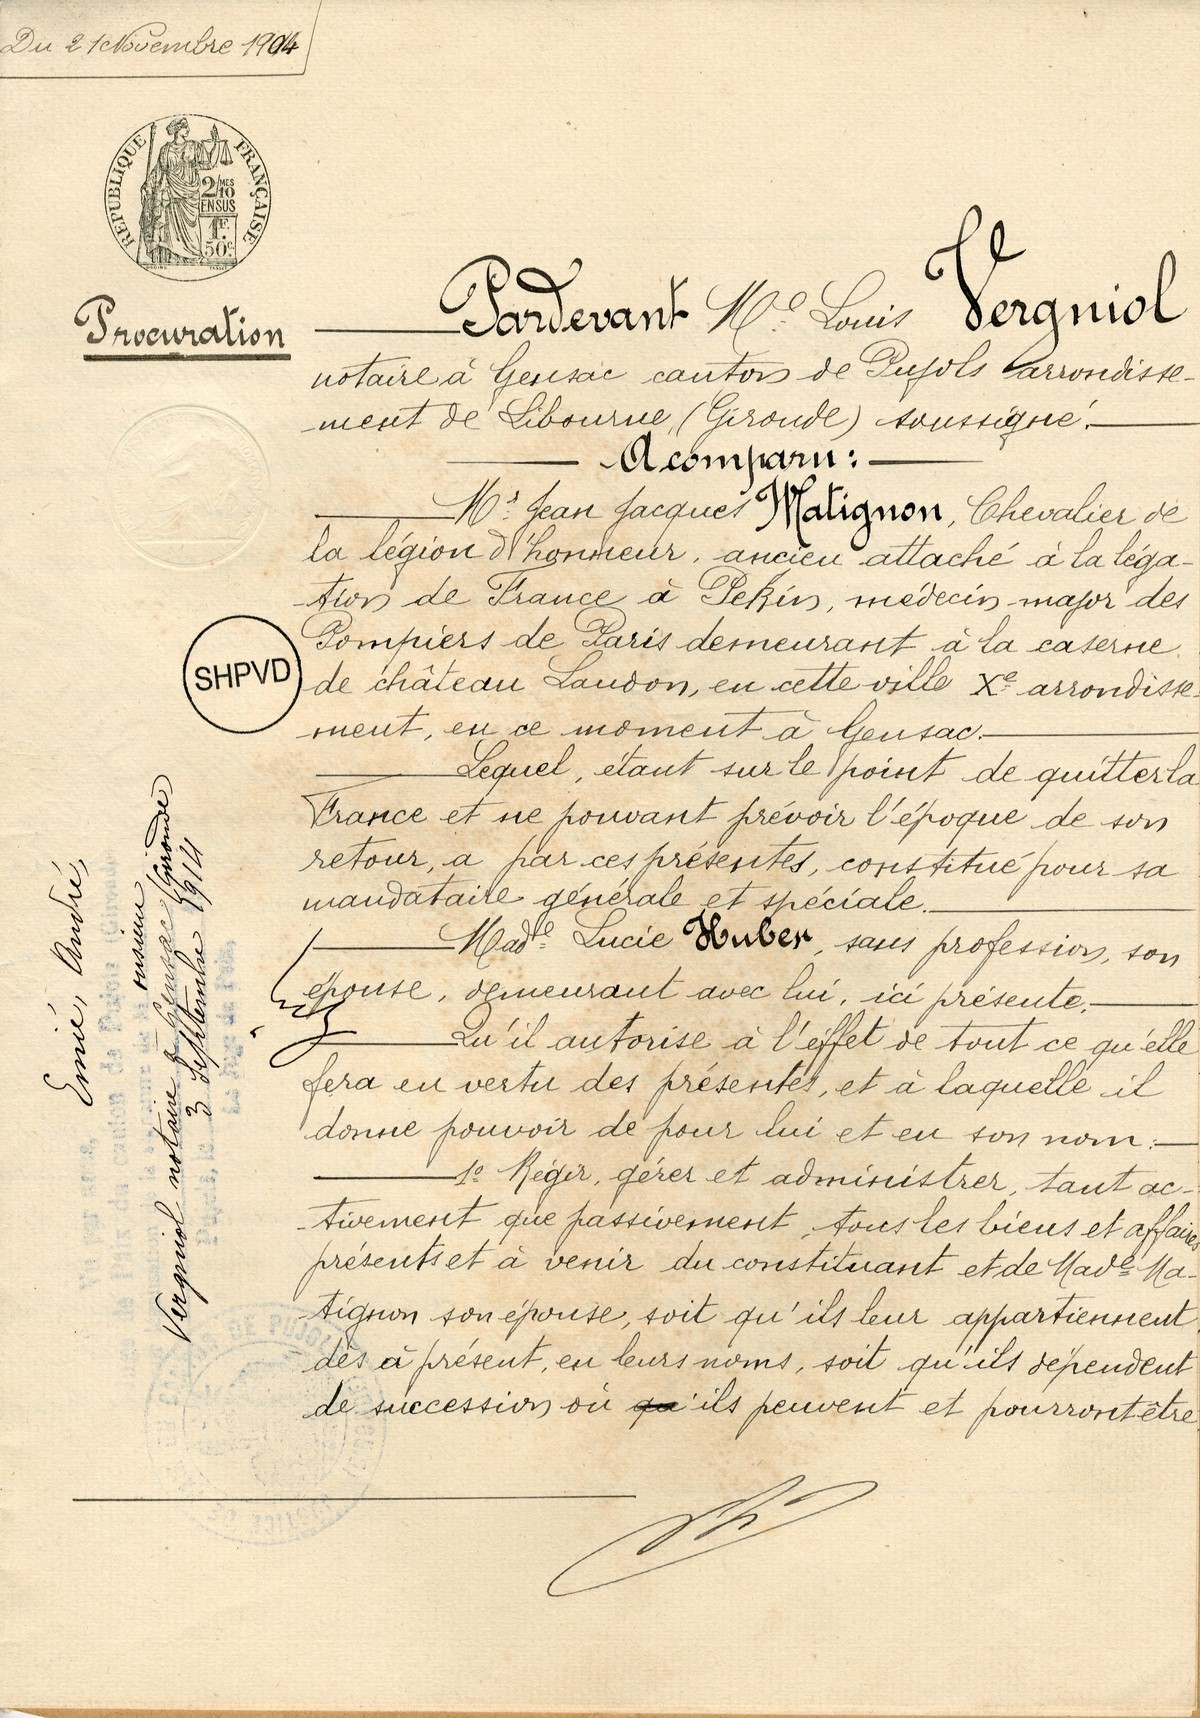 Du 21 Novembre 1904
RÉPUBLIQUE FRANÇAISE
2/10 MES
EN SUS
1F
50c
Procuration
Pardevant Me Louis Vergniol
notaire à Gensac canton de Pujols arrondisse-
ment de Libourne, (Gironde) soussigné.
A comparu:
Mr. Jean Jacques Matignon, Chevalier de
la légion d'honneur, ancien attaché à la léga-
tion de France à Pekin, médecin major des
Pompiers de Paris demeurant à la caserne
de château Laudon, en cette ville Xe arrondisse-
ment, en ce moment à Gensac.
Lequel, étant sur le point de quitter la
France et ne pouvant prévoir l'époque de son
retour, a par ces présentes, constitué pour sa
mandataire générale et spéciale.
Made Lucie Huber, sans profession, son
épouse, demeurant avec lui, ici présente.
Qu'il autorise à l'effet de tout ce qu'elle
fera en vertu des présentes, et à laquelle il
donne pouvoir de pour lui et en son nom:
1o Régir, gérer et administrer, tant ac-
tivement que passivement, tous les biens et affaires
présents et à venir du constituant et de Made Ma-
tignon son épouse, soit qu'ils leur appartiennent
dès à présent, en leurs noms, soit qu'ils dépendent
de succession où qu'ils peuvent et pourront être
SHPVD
Emié, André,
monsieur
Vergniol notaire à Gensac Gironde
3 Septembre 1914
DE PUJOLS